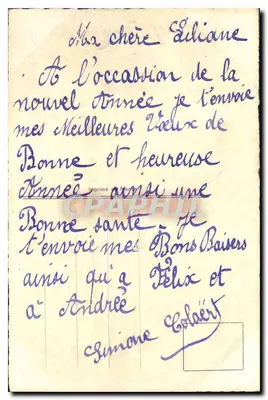 Ma chère Liliane
A l'occassion de la
nouvel Année je t'envoie
mes Meilleures Vœux de
Bonne et heureuse
Année ainsi une
Bonne santé. Je
t'envoie mes Bons Baisers
ainsi qu'a Félix et
à Andrée
Simone Colaërt